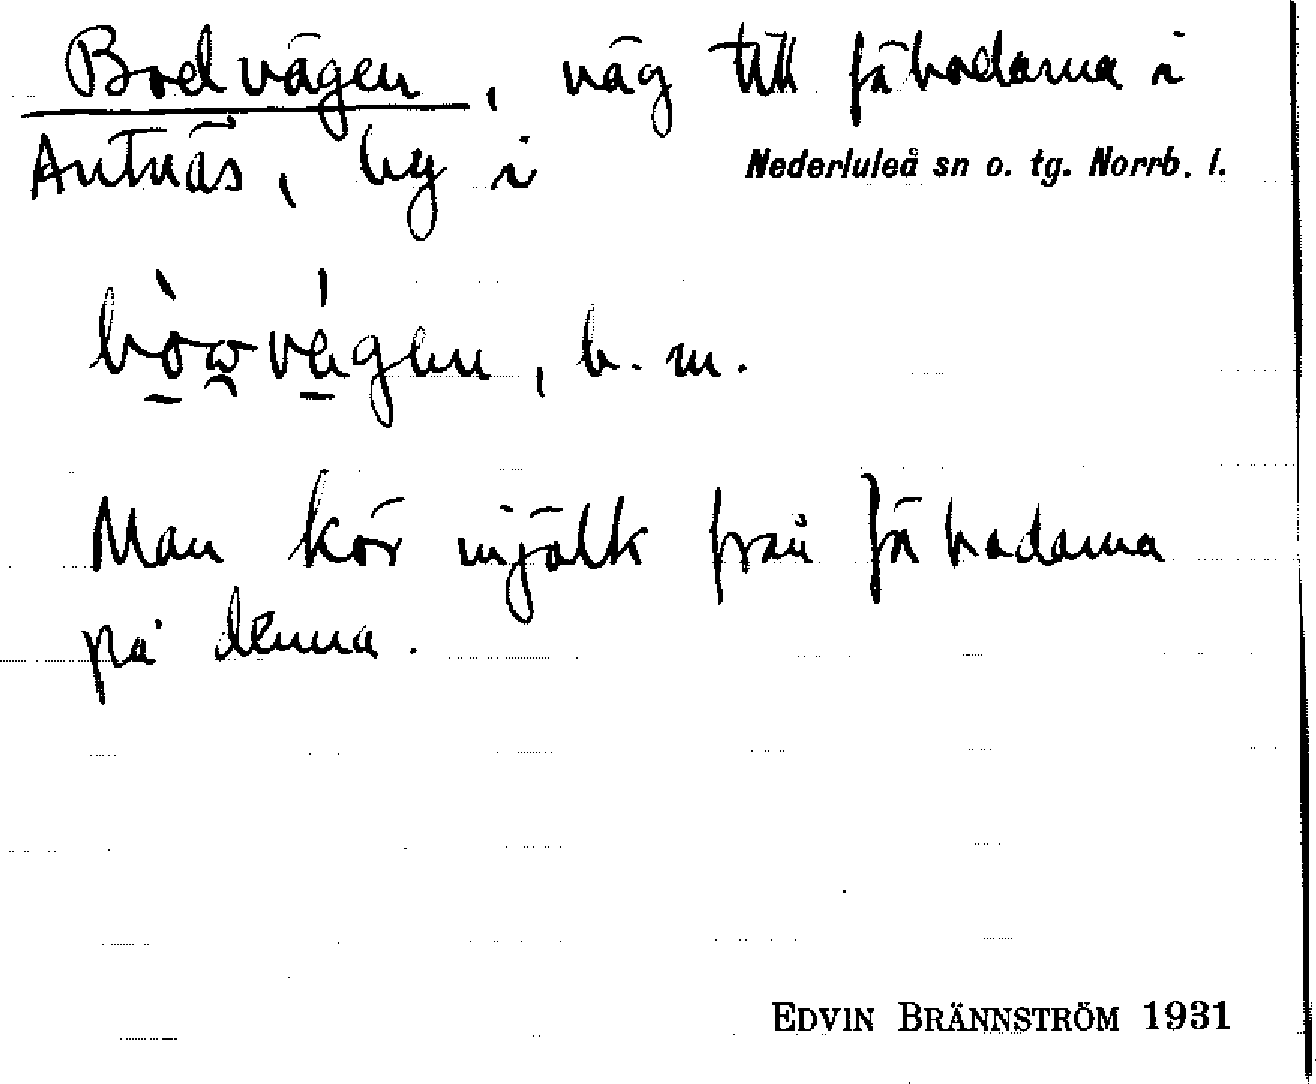 Bodvägen, väg till fäbodarna i
Antnäs, by i Nederluleå sn o. tg. Norrb. l.
bòw̯vé̱gen, b. m.
Man kör mjölk från fäbodarna
på denna.
EDVIN BRÄNNSTRÖM 1931